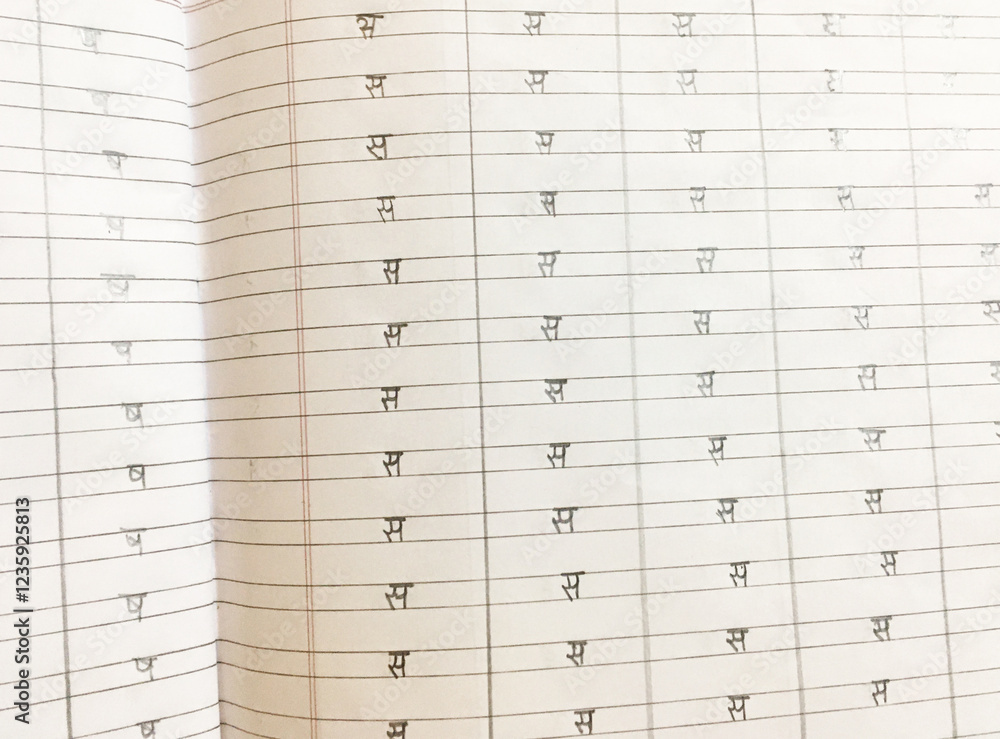 ष
ष
ष
ष
ष
ष
ष
ष
ष
ष
ष
ष
स स स स स
स स स स स
स स स स स
स स स स स
स स स स स
स स स स स
स स स स
स स स स
स स स स
स स स स
स स स स
स स स स
Adobe Stock | #1235925813